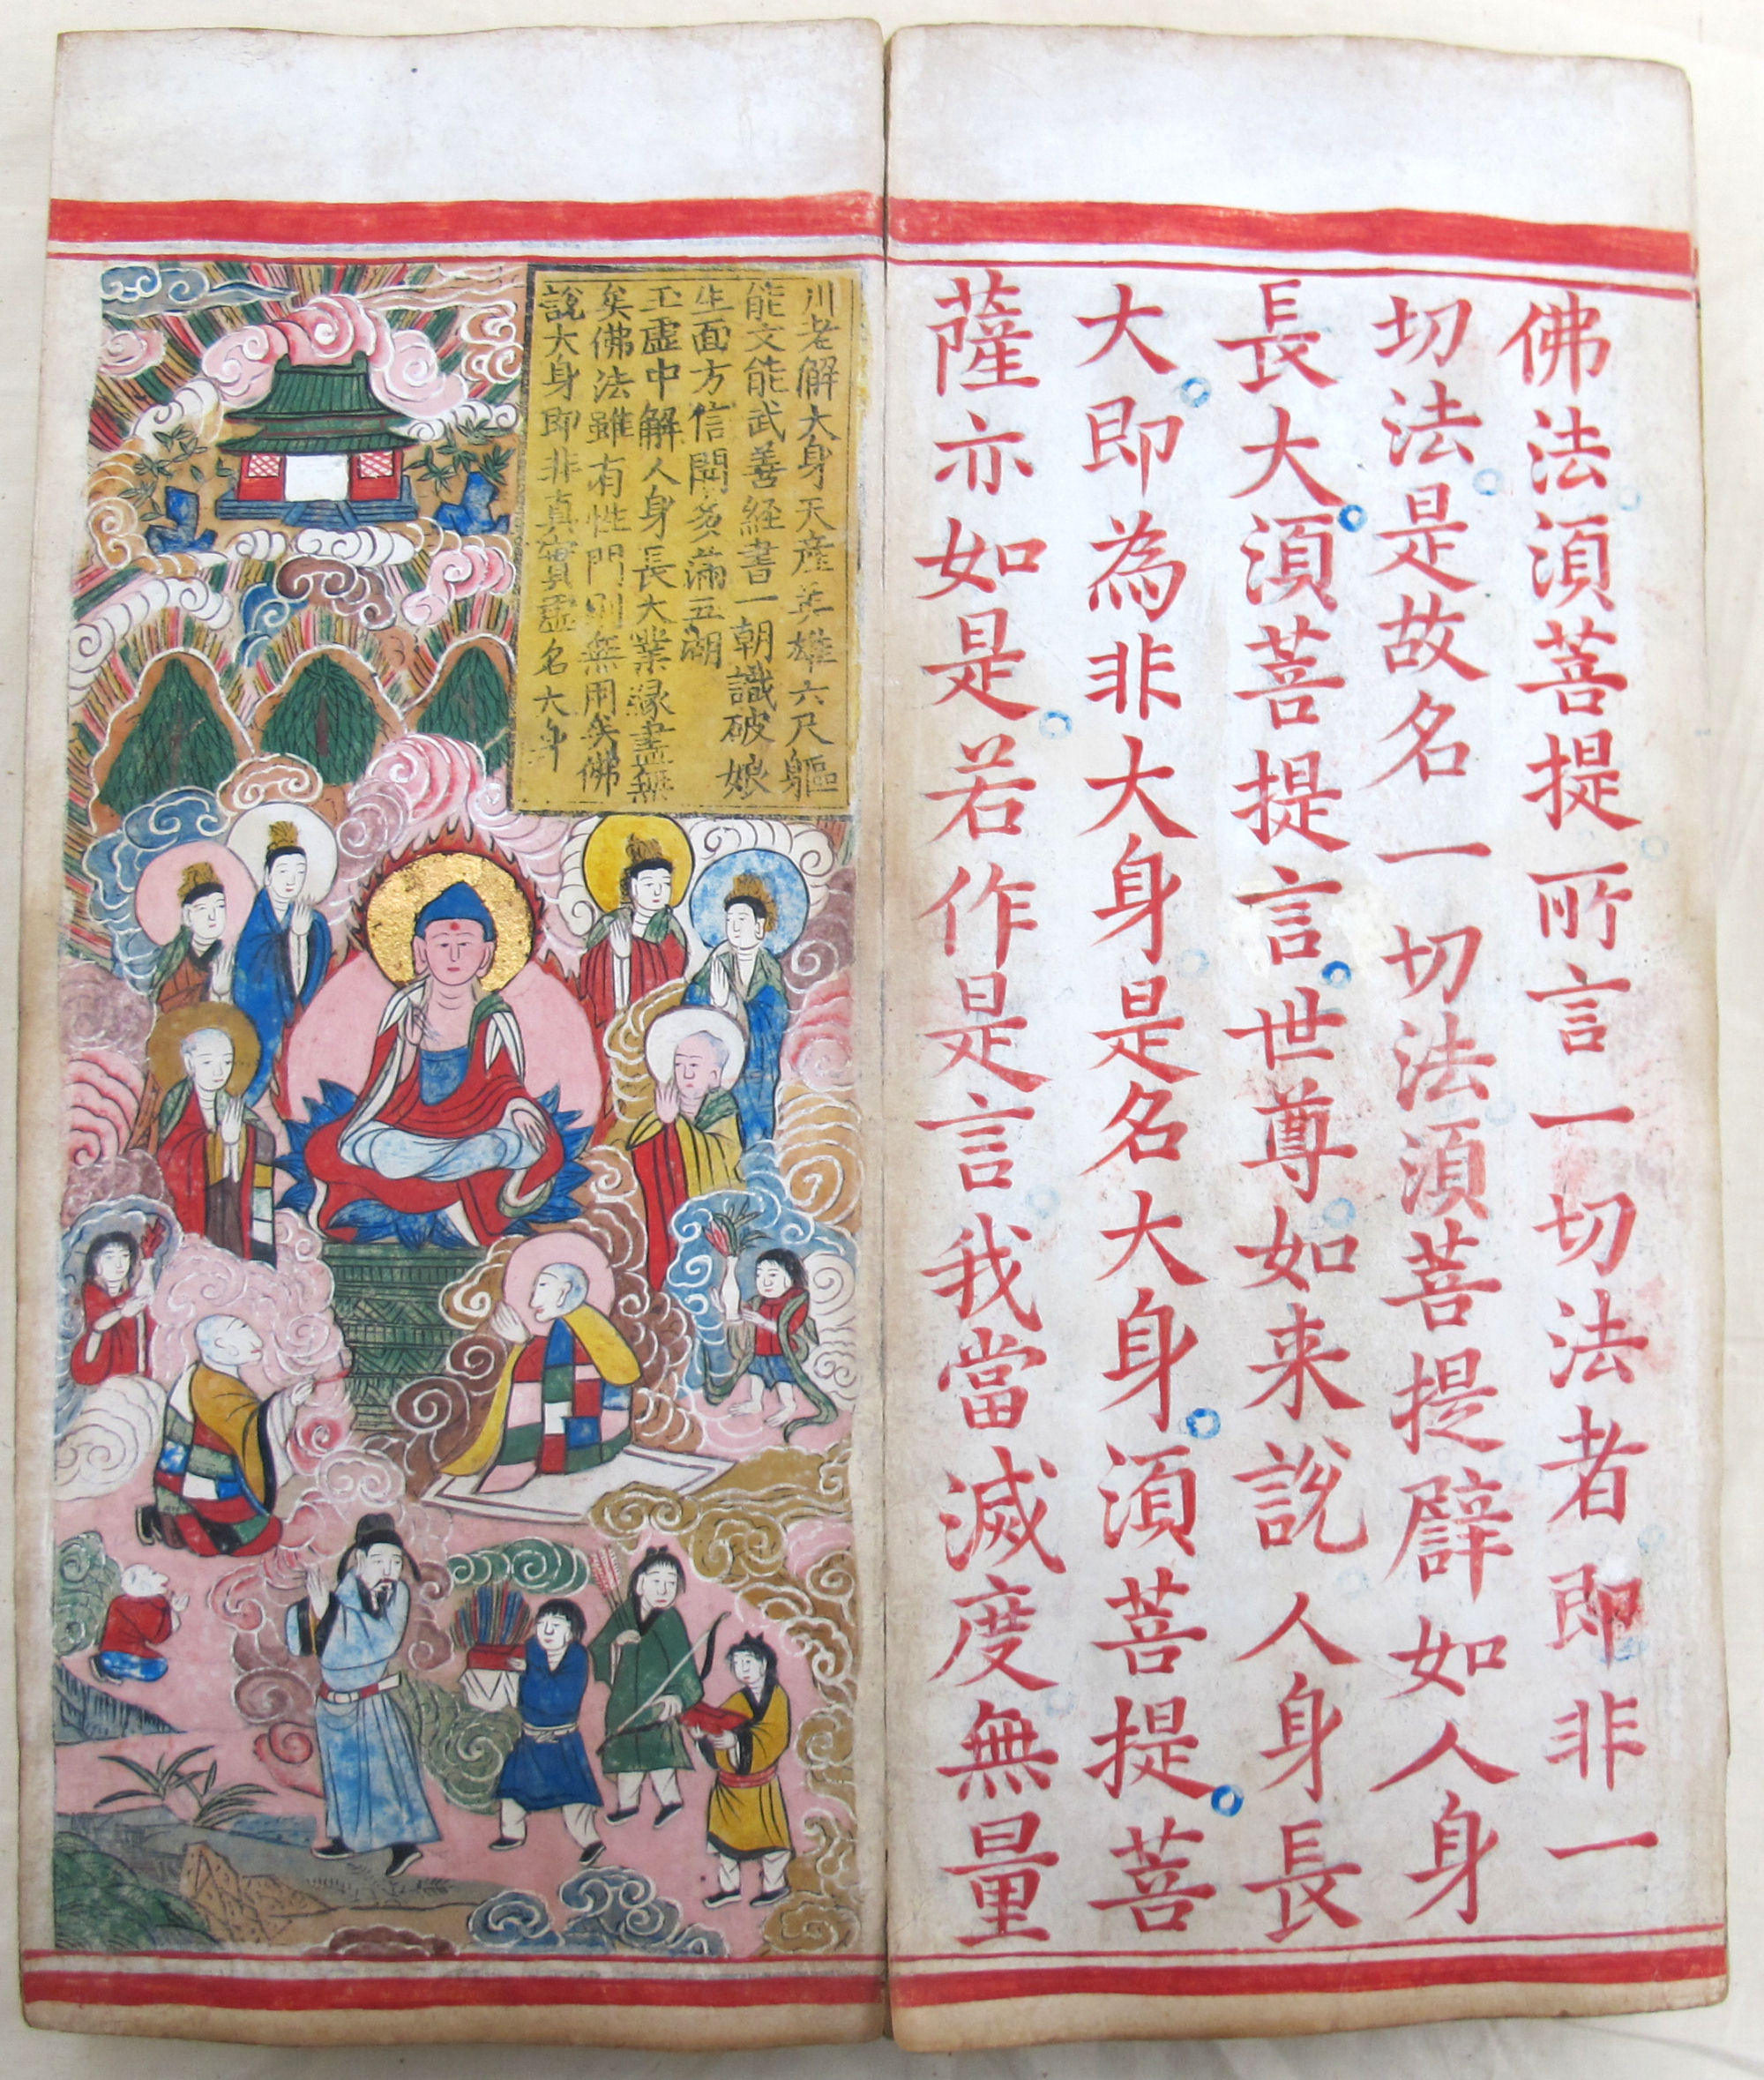 佛法須菩提所言一切法者即非一
切法是故名一切法須菩提譬如人身
長大須菩提言世尊如来說人身長
大即為非大身是名大身須菩提菩
薩亦如是若作是言我當滅度無量
川老解大身天產英雄六尺軀
能文能武善経書一朝識破娘
生面方信閑名滿五湖
玉虛中解人身長大業緣盡無
矣佛法雖有性門則無用矣佛
說大身即非真實虛名大身